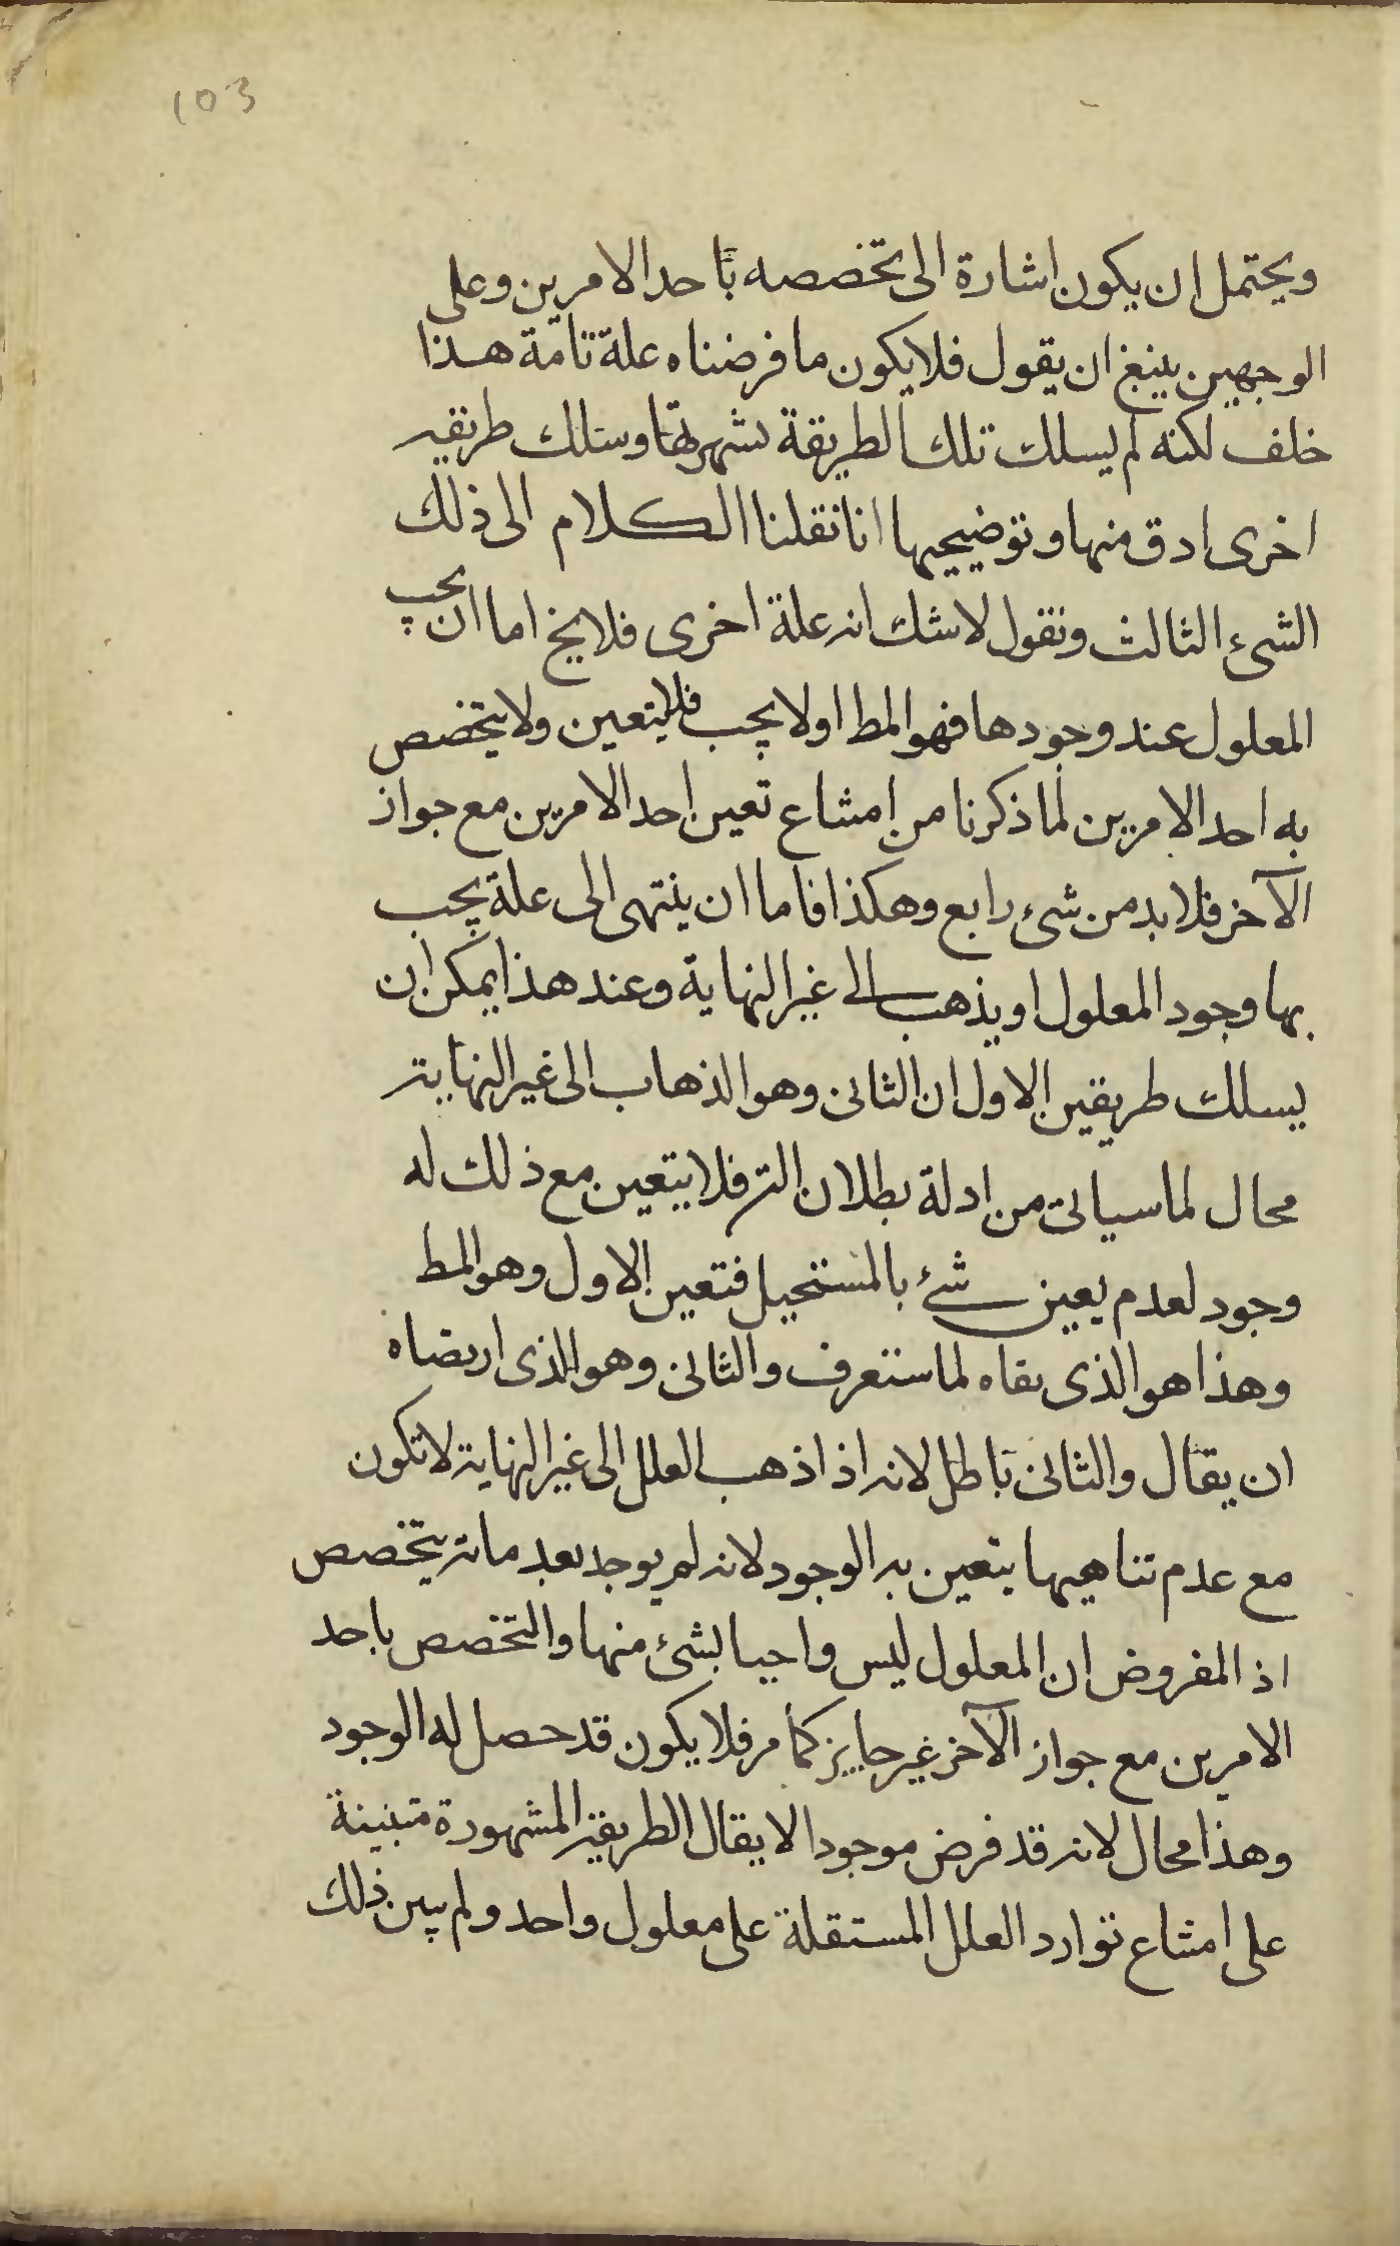 103
ويحتمل ان يكون اشارة الى تخصصه باحد الامرين وعلى
الوجهين ينبغ ان يقول فلا يكون ما فرضناه علة تامة هذا
خلف لكنه لم يسلك تلك الطريقة لشهرتها وسلك طريقه
اخرى ادق منها وتوضيحها انا نقلنا الكلام الى ذلك
الشئ الثالث ونقول لا شك انه علة اخرى فلا يخ اما ان يجب
المعلول عند وجودها فهو المط او لا يجب فلا يتعين ولا يتخصص
به احد الامرين لما ذكرنا من امتناع تعين احد الامرين مع جواز
الآخر فلا بد من شئ رابع وهكذا فاما ان ينتهى الى علة يجب
بها وجود المعلول او يذهب الى غير النهاية وعند هذا يمكن ان
يسلك طريقين الاول ان الثانى وهو الذهاب الى غير النهايه
محال لما سياتى من ادلة بطلان التس فلا يتعين مع ذلك له
وجود لعدم يعين شئ بالمستحيل فتعين الاول وهو المط
وهذا هو الذى نفاه لما ستعرف والثانى وهو الذى ارتضاه
ان يقال والثانى باطل لانه اذا ذهب العلل الى غير النهايه لا تكون
مع عدم تناهيها يتعين به الوجود لانه لم يوجد بعد ما به يتخصص
اذ المفروض ان المعلول ليس واجبا بشئ منها والتخصص باحد
الامرين مع جواز الآخر غير جايز كما مر فلا يكون قد حصل له الوجود
وهذا محال لانه قد فرض موجودا لا يقال الطريقه المشهورة مبنية
على امتناع توارد العلل المستقلة على معلول واحد ولم يبين ذلك